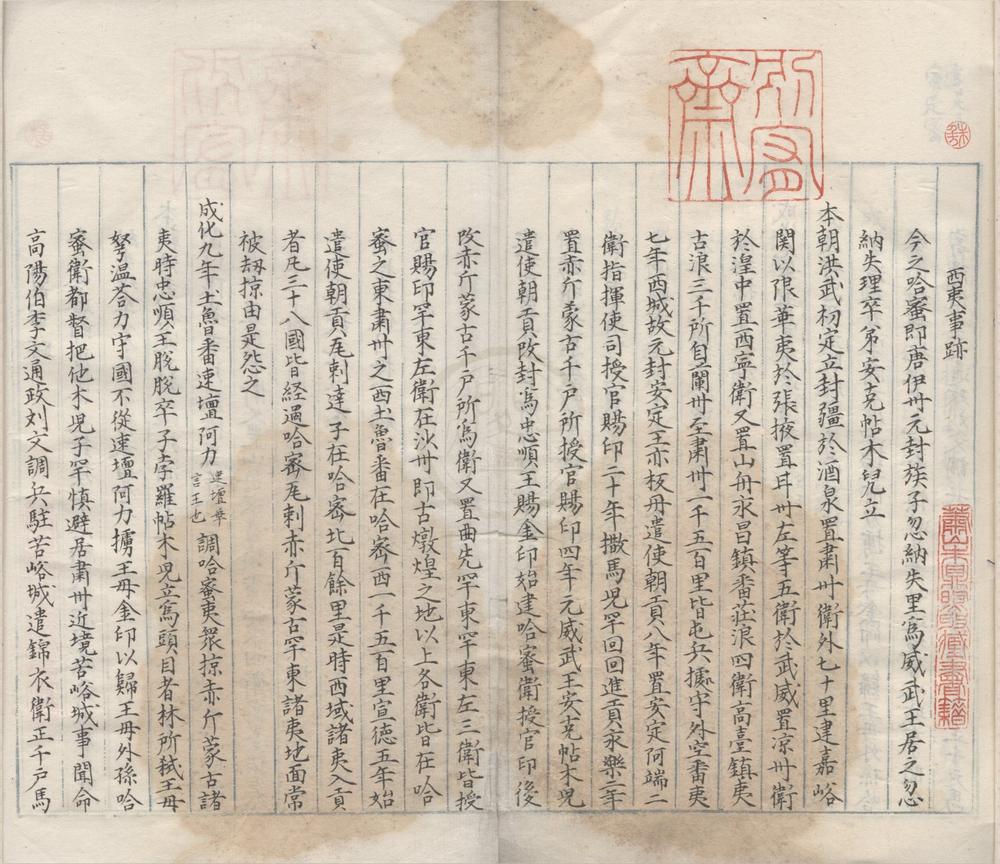 西夷事跡
今之哈蜜即唐伊州元封族子忽納失里為威武王居之忽
納失理卒弟安克帖木兒立
本朝洪武初定立封疆於酒泉置肅州衛外七十里建嘉峪
関以限華夷於張掖置甘州左等五衛於武威置凉州衛
於湟中置西寧衛又置山丹永昌鎮番莊浪四衛高臺鎮夷
古浪三千所自蘭州至肅州一千五百里皆屯兵據守外空番夷
七年西域故元封安定王亦板丹遣使朝貢八年置安定阿端二
衛指揮使司授官賜印二十年撒馬児罕回回進貢永樂二年
置赤斤蒙古千戸所授官賜印四年元威武王安克帖木児
遣使朝貢改封為忠順王賜金印始建哈蜜衛授官印後
改赤斤蒙古千戸所為衛又置曲先罕東罕東左三衛皆授
官賜印罕東左衛在沙州即古燉煌之地以上各衛皆在哈
蜜之東肅州之西土魯番在哈密西一千五百里宣德五年始
遣使朝貢瓦剌達子在哈密北百餘里是時西域諸夷入貢
者凡三十八國皆経過哈密瓦剌赤斤蒙古罕東諸夷地面常
被刼掠由是怨之
成化九年土魯番速壇阿力速壇華言王也調哈蜜夷衆掠赤斤蒙古諸
夷時忠順王脫脫卒子孛羅帖木児立為頭目者林所弒王母
弩温荅力守國不從速壇阿力擄王母金印以歸王母外孫哈
蜜衛都督把他木児子罕慎避居肅州近境苦峪城事聞命
高陽伯李文通政刘文調兵駐苦峪城遣錦衣衛正千戸馬